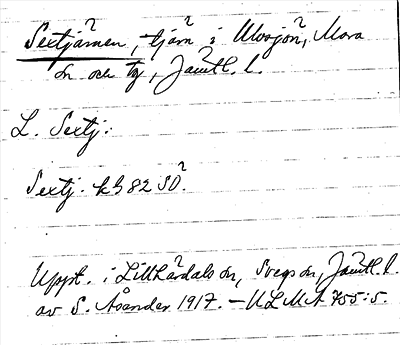 Sextjärnen, tjärn i Ulvsjön, Mora
sn och tg, Jämtl. l.
L. Sextj:
Sextj. kb 82 SO.
Uppt. i Lillhärdals sn, Svegs sn, Jämtl. l.
av S. Åsander 1917. – ULMA 755:5.